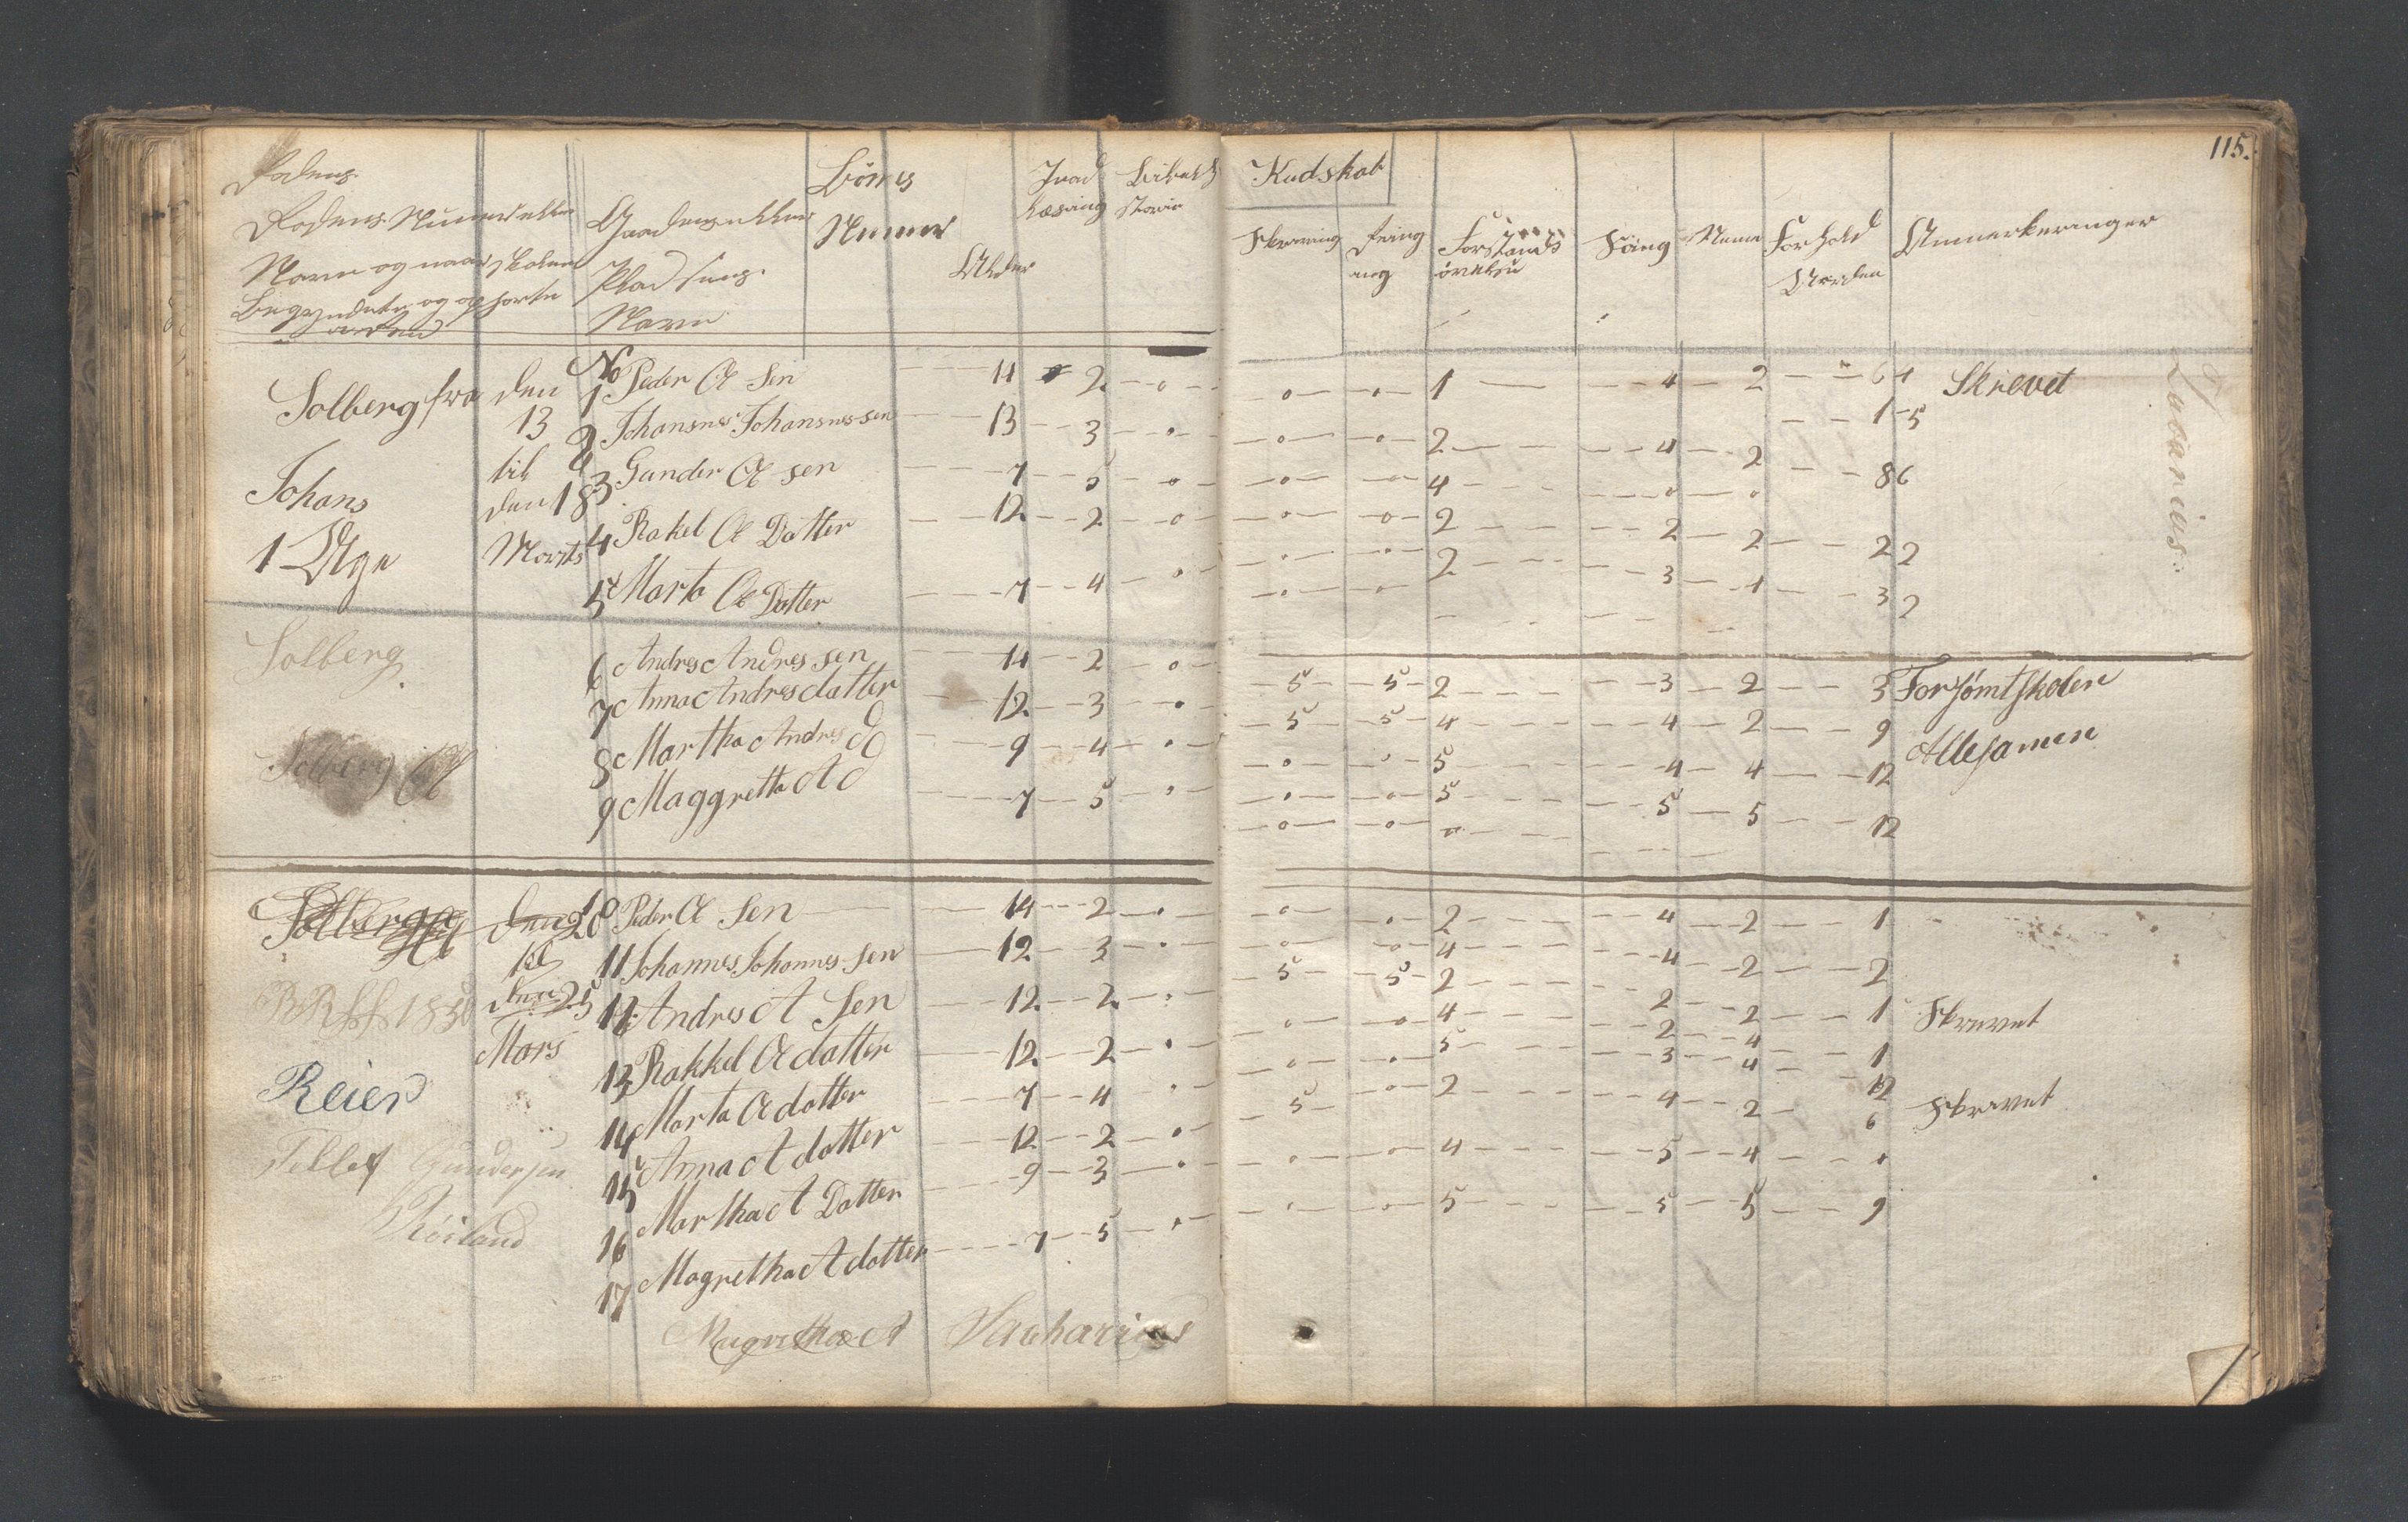 115.
Rodens
Rodens Numer eller
Navn og naar skolen
Begyndete og ophorte
Gaardens eller
Pladsens
Navn
Börnes
Numer
Alder
Inad
Læsning
Bibelhi
storie
Kudskab
Skrivning
Reing
ning
Forstands
övelse
Sang
Neme
Forhold
Anmerkeringer
Solberg fra den 13 til den 18 Marts
Johans
1 Uge
No
1 Peder Æ Sen 11 2 0 0 0 1 4 2 6 1 Skrevet
2 Johansnes Johansnessen 13 3 0 0 0 2 4 2 1 5
3 Gunder Æ sen 7 5 0 0 0 4 0 0 8 6
4 Rakel Æ Datter 12 2 0 0 0 2 2 2 2 2
5 Marta Æ Datter 7 4 0 0 0 2 3 1 3 2
Zacarias
Solberg
6 Andres Andres sen 14 2 0 5 5 2 3 2 3 Forsömt skolen
7 Anna Andresdatter 12 3 0 5 5 4 4 2 9 Allesamen
8 Martha Andres D 9 4 0 0 0 5 4 4 12
9 Maggretha A D 7 5 0 0 0 5 5 5 12
Solberg Æ
Solberg den 20 til den 25 Mars
10 Peder Æ Sen 14 2 0 0 0 2 4 2 1
11 Johannes Johannes Sen 12 3 0 0 0 4 4 2 2
12 Andres A Sen 12 2 0 5 5 2 2 2 1 Skrevet
13 Rakkel Æ datter 12 2 0 0 0 4 2 4 1
14 Marta Æ datter 7 4 0 0 0 5 3 4 12
15 Anna A datter 12 2 0 5 0 2 4 2 6 Skrevet
16 Martha A Datter 9 3 0 0 0 4 5 4 0
17 Magretha A datter 7 5 0 0 0 5 5 5 9
Reier
Tellef Gundersen
Röiland
Magretha A Zacharias